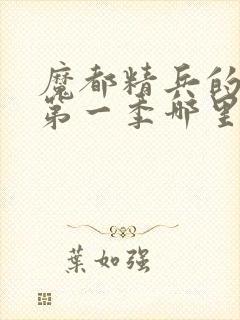 魔都精兵的
第一季哪里
葉如强